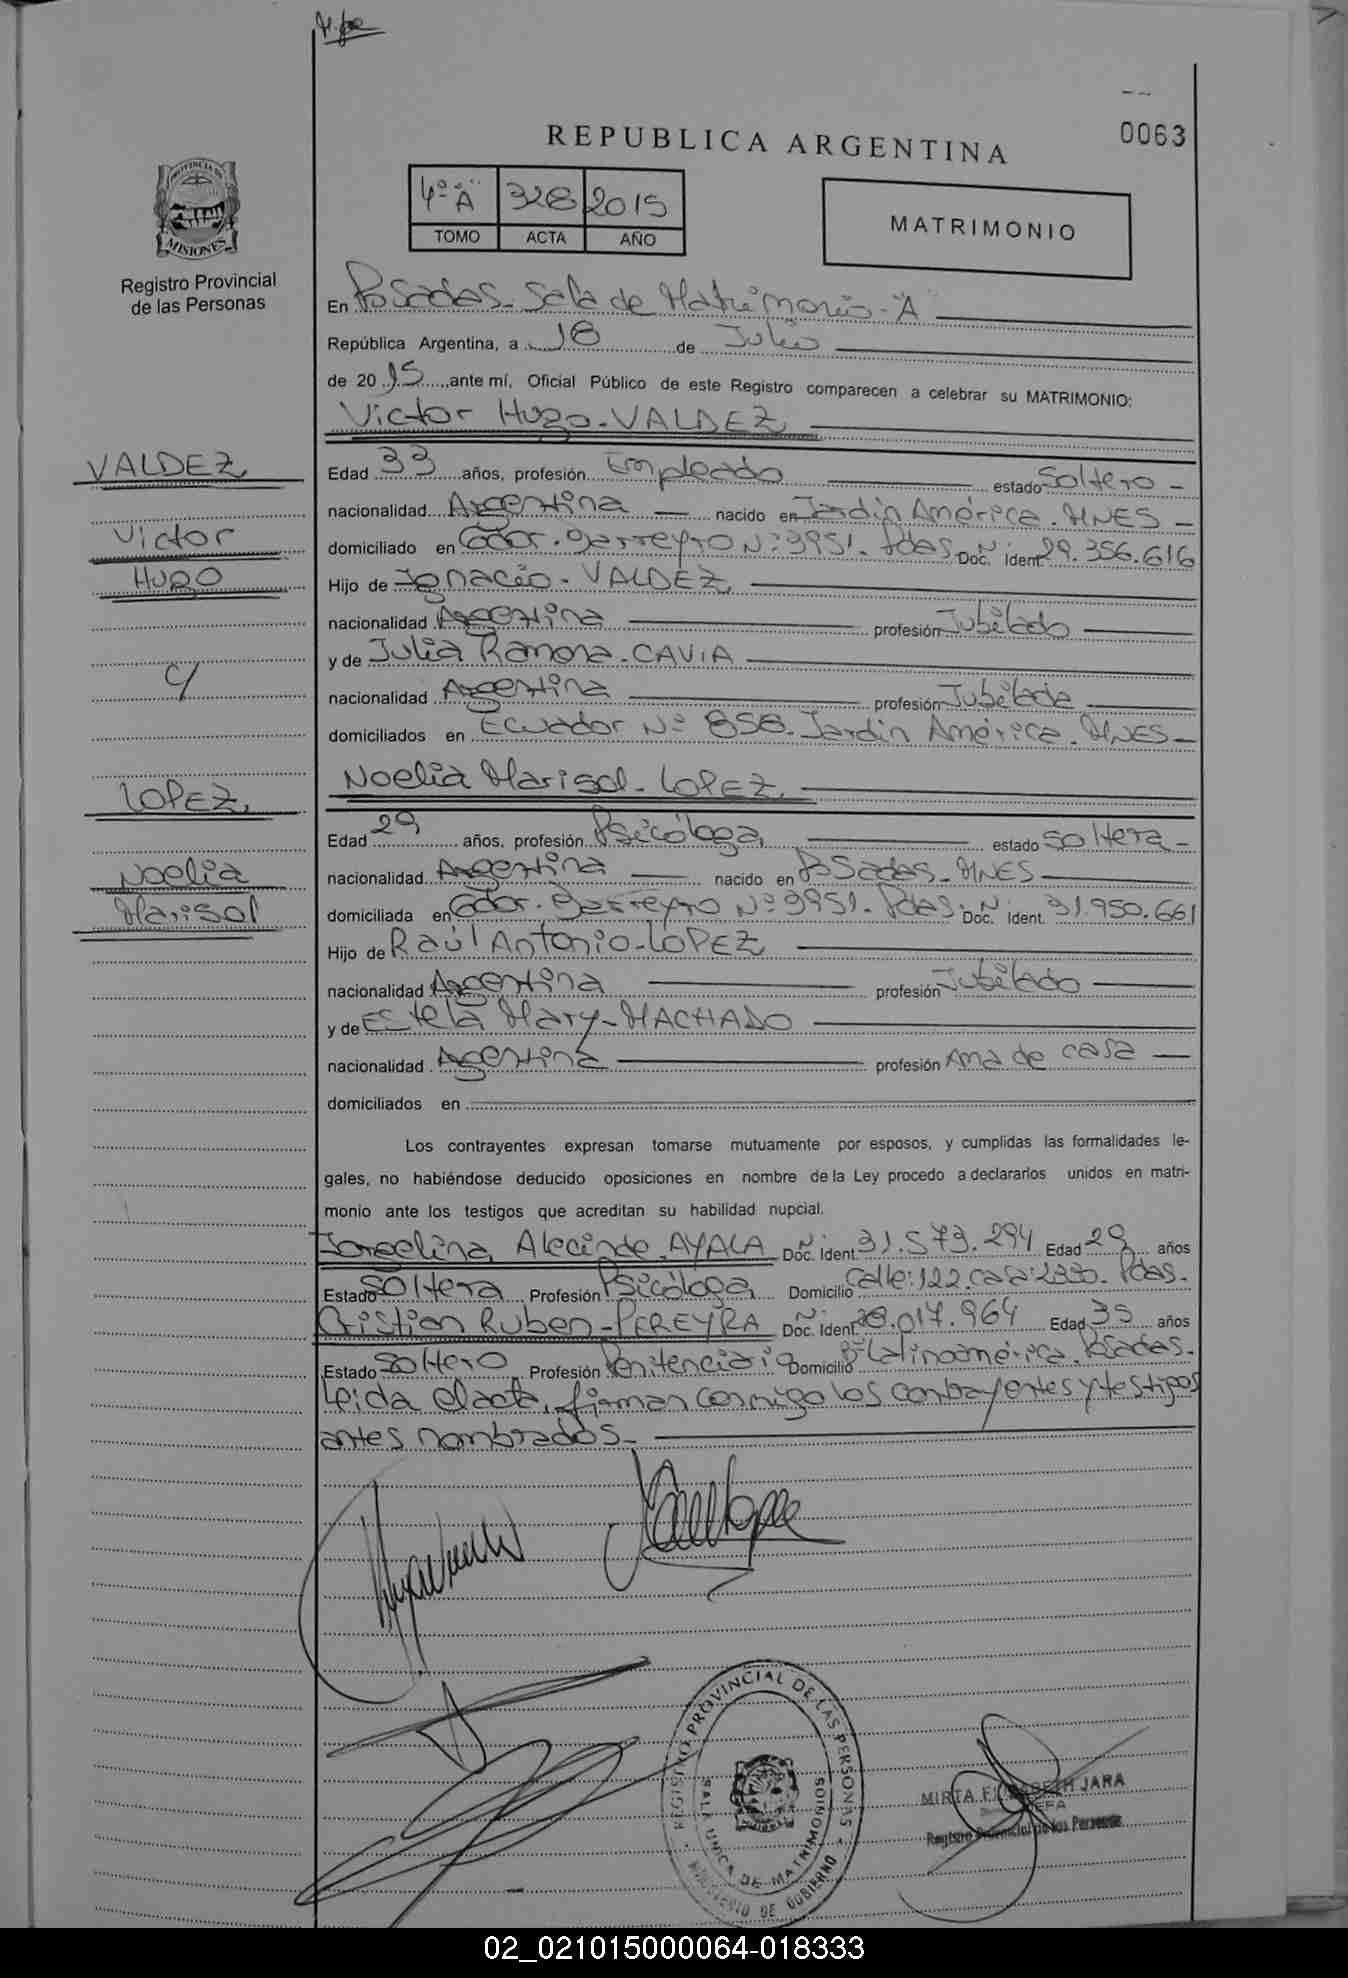 0063
REPUBLICA ARGENTINA
4º "A" 328 2015
TOMO ACTA AÑO
MATRIMONIO
PROVINCIA DE
MISIONES
Registro Provincial
de las Personas
En Posadas - Sala de Matrimonio - "A"
República Argentina, a 18 de Julio
de 20 15, ante mí, Oficial Público de este Registro comparecen a celebrar su MATRIMONIO:
Victor Hugo - VALDEZ
VALDEZ
Victor
Hugo
c/
LOPEZ
Noelia
Marisol
Edad 33 años, profesión Empleado estado Soltero -
nacionalidad Argentina nacido en Jardín América. MNES -
domiciliado en Gdor. Barreyro Nº 3951. Pdas. Doc. Ident. 29.356.616
Hijo de Ignacio - VALDEZ
nacionalidad Argentina profesión Jubilado
y de Julia Ramona - CAVIA
nacionalidad Argentina profesión Jubilada
domiciliados en Ecuador Nº 858. Jardín América. MNES -
Noelia Marisol - LOPEZ
Edad 29 años, profesión Psicóloga estado Soltera -
nacionalidad Argentina nacido en Posadas - MNES
domiciliada en Gdor. Barreyro Nº 3951. Pdas. Doc. Ident. 31.950.661
Hijo de Raúl Antonio - LOPEZ
nacionalidad Argentina profesión Jubilado
y de Estela Mary - MACHADO
nacionalidad Argentina profesión Ama de casa
domiciliados en
Los contrayentes expresan tomarse mutuamente por esposos, y cumplidas las formalidades le-
gales, no habiéndose deducido oposiciones en nombre de la Ley procedo a declararlos unidos en matri-
monio ante los testigos que acreditan su habilidad nupcial.
Jorgelina Alecinde. AYALA Doc. Ident. 31.573.294 Edad 29 años
Estado Soltera Profesión Psicóloga Domicilio Calle: 122. casa: Pdas.
Cristian Ruben - PEREYRA Doc. Ident. 28.017.964 Edad 35 años
Estado Soltero Profesión Penitenciario Domicilio Bº Latinoamérica. Posadas.
Leida el acta, firman conmigo los contrayentes y testigos
antes nombrados -
REGISTRO PROVINCIAL DE LAS PERSONAS
SALA UNICA DE MATRIMONIOS
MINISTERIO DE GOBIERNO
MIRTA ELIZABETH JARA
JEFA
Registro Provincial de las Personas
02_021015000064-018333